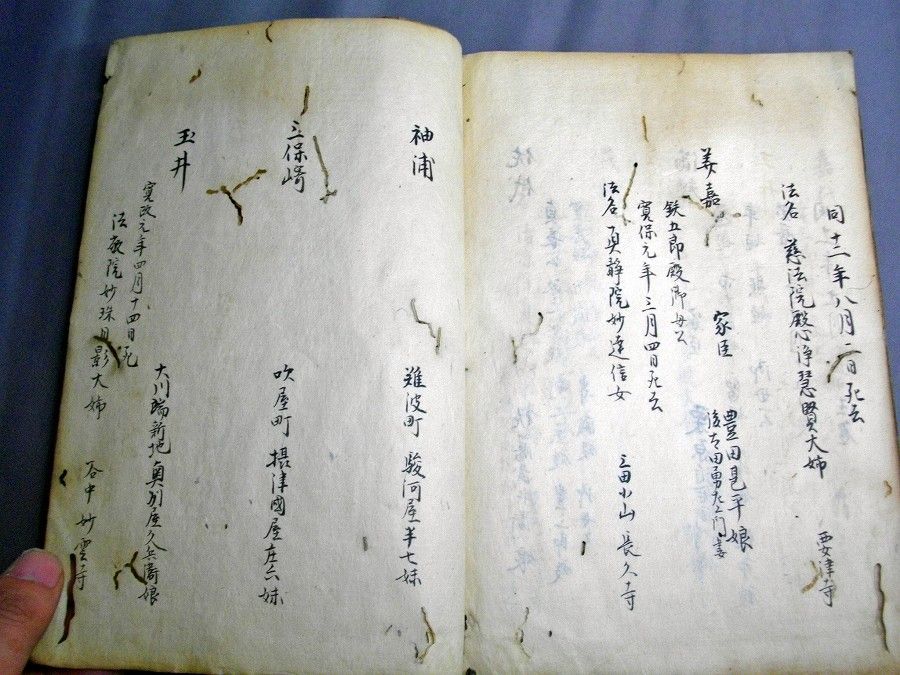 同十二年八月二日死去
法名 慈法院殿心浄慧賢大姉 西安津寺
美嘉 家臣 豊田見平娘
後吉田勇左エ門妻
鉄五郎殿御母公
寛保元年三月四日死去
法名 真静院妙達信女 三田小山 長久寺
袖浦 難波町 駿河屋半七妹
三保崎 吹屋町 摂津國屋庄六妹
玉井 大川端新地奥列屋久兵衛娘
寛政元年四月十四日死
法院妙珠月影大姉 谷中妙雲寺